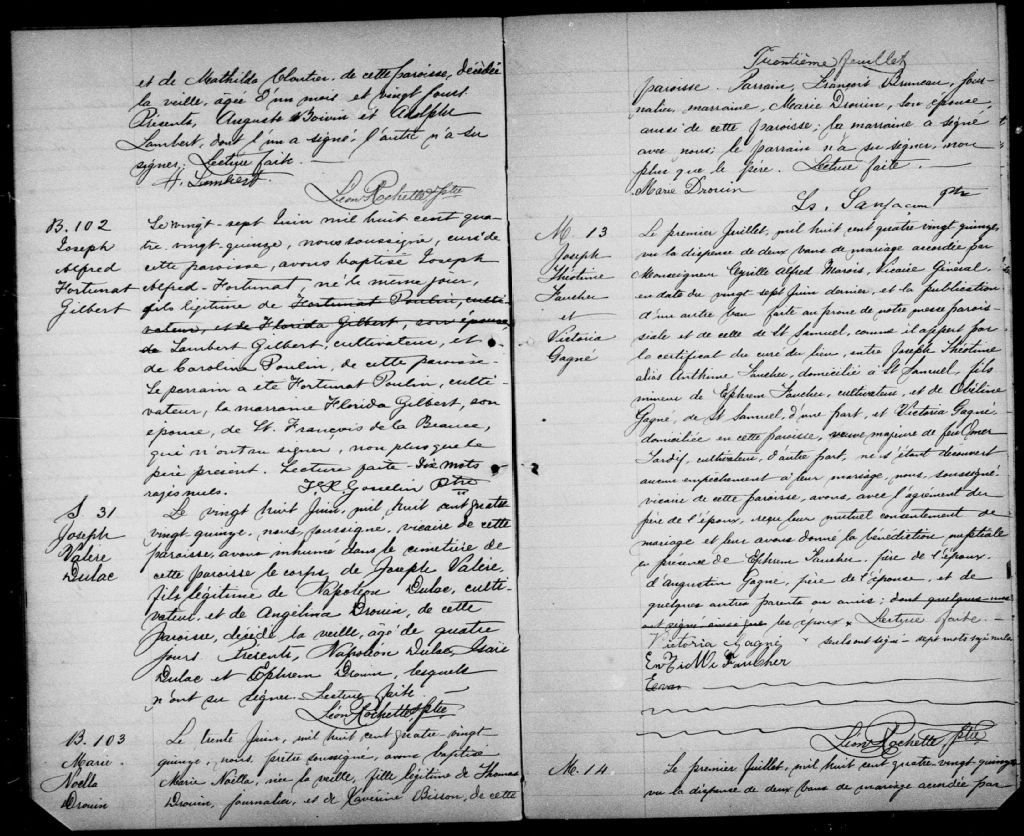 et de Mathilda Cloutier, de cette paroisse, décédée
la veille, âgée d'un mois et vingt jours.
Présents, Auguste Boivin et Adolphe
Lambert, dont l'un a signé, l'autre n'a su
signer. Lecture faite.
A. Lambert.
Léon Rochette ptre
B. 102
Joseph
Alfred
Fortunat
Gilbert
Le vingt-sept Juin mil huit cent qua-
tre-vingt-quinze, nous soussigné, curé de
cette paroisse, avons baptisé Joseph
Alfred-Fortunat, né le même jour,
fils légitime de Fortunat Poulin, culti-
vateur, et de Florida Gilbert, son épouse
de Lambert Gilbert, cultivateur, et
de Carolina Poulin, de cette paroisse.
Le parrain a été Fortunat Poulin, culti-
vateur, la marraine Florida Gilbert, son
épouse, de St. François de la Beauce,
qui n'ont su signer, non plus que le
père présent. Lecture faite. Dix mots
rayés nuls.
F. X. Gosselin Ptre
S 31
Joseph
Valère
Dulac
Le vingt huit Juin, mil huit cent quatre
vingt quinze, nous, soussigné, vicaire de cette
paroisse, avons inhumé dans le cimetière de
cette paroisse le corps de Joseph Valère,
fils légitime de Napoléon Dulac, culti-
vateur, et de Angelina Drouin, de cette
paroisse, décédé la veille, âgé de quatre
jours. Présents, Napoléon Dulac, Isaïe
Dulac et Ephrem Drouin, lesquels
n'ont su signer. Lecture faite.
Léon Rochette ptre
B. 103
Marie
Noëlla
Drouin
Le trente Juin, mil huit cent quatre-vingt-
quinze, nous, prêtre soussigné, avons baptisé
Marie Noëlla, née la veille, fille légitime de Thomas
Drouin, journalier, et de Bisson, de cette
Trentième feuillet
paroisse. Parrain, François Bruneau, jour-
nalier, marraine, Marie Drouin, son épouse,
aussi de cette paroisse; la marraine a signé
avec nous; le parrain n'a su signer, non
plus que le père. Lecture faite.
Marie Drouin
Ls. Sanfacon ptre
M. 13
Joseph
Théotime
Faucher
et
Victoria
Gagné
Le premier Juillet, mil huit cent quatre vingt quinze,
vu la dispense de deux bans de mariage accordée par
Monseigneur Cyrille Alfred Marois, Vicaire Général,
en date du vingt-sept Juin dernier, et la publication
d'un autre ban faite au prône de notre messe parois-
siale et de celle de St Samuel, comme il appert par
le certificat du curé du lieu, entre Joseph Théotime
alias Anthime Faucher, domicilié à St Samuel, fils
mineur de Ephrem Faucher, cultivateur, et de Obéline
Gagné, de St Samuel, d'une part, et Victoria Gagné
domiciliée en cette paroisse, veuve majeure de feu Omer
Tardif, cultivateur, d'autre part, ne s'étant découvert
aucun empêchement à leur mariage, nous, soussigné
vicaire de cette paroisse, avons, avec l'agrément du
père de l'époux, reçu leur mutuel consentement de
mariage et leur avons donné la bénédiction nuptiale
en présence de Ephrem Faucher, père de l'époux,
d'Augustin Gagné, père de l'épouse, et de
quelques autres parents ou amis; dont quelques-uns
ont signé ainsi que les époux x Lecture faite.
Victoria Gagné x seuls ont signé - sept mots rayés nuls
EnTiMe Faucher
Léon Rochette ptre
M. 14
Le premier Juillet, mil huit cent quatre vingt quinze
vu la dispense de deux bans de mariage accordée par